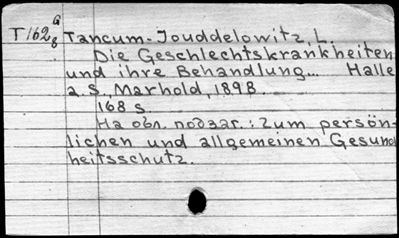 T 162 G/8 Tancum-Jouddelowitz, L.
Die Geschlechtskrankheiten
und ihre Behandlung... Halle
a. S., Marhold, 1898.
168 s.
На обл. подзаг.: Zum persön-
lichen und allgemeinen Gesund
heitsschutz.